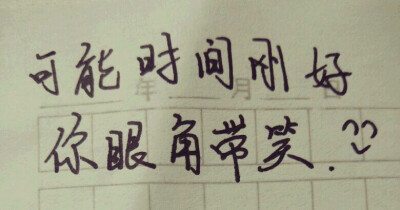 可能时间刚好
年 月 日
你眼角带笑.